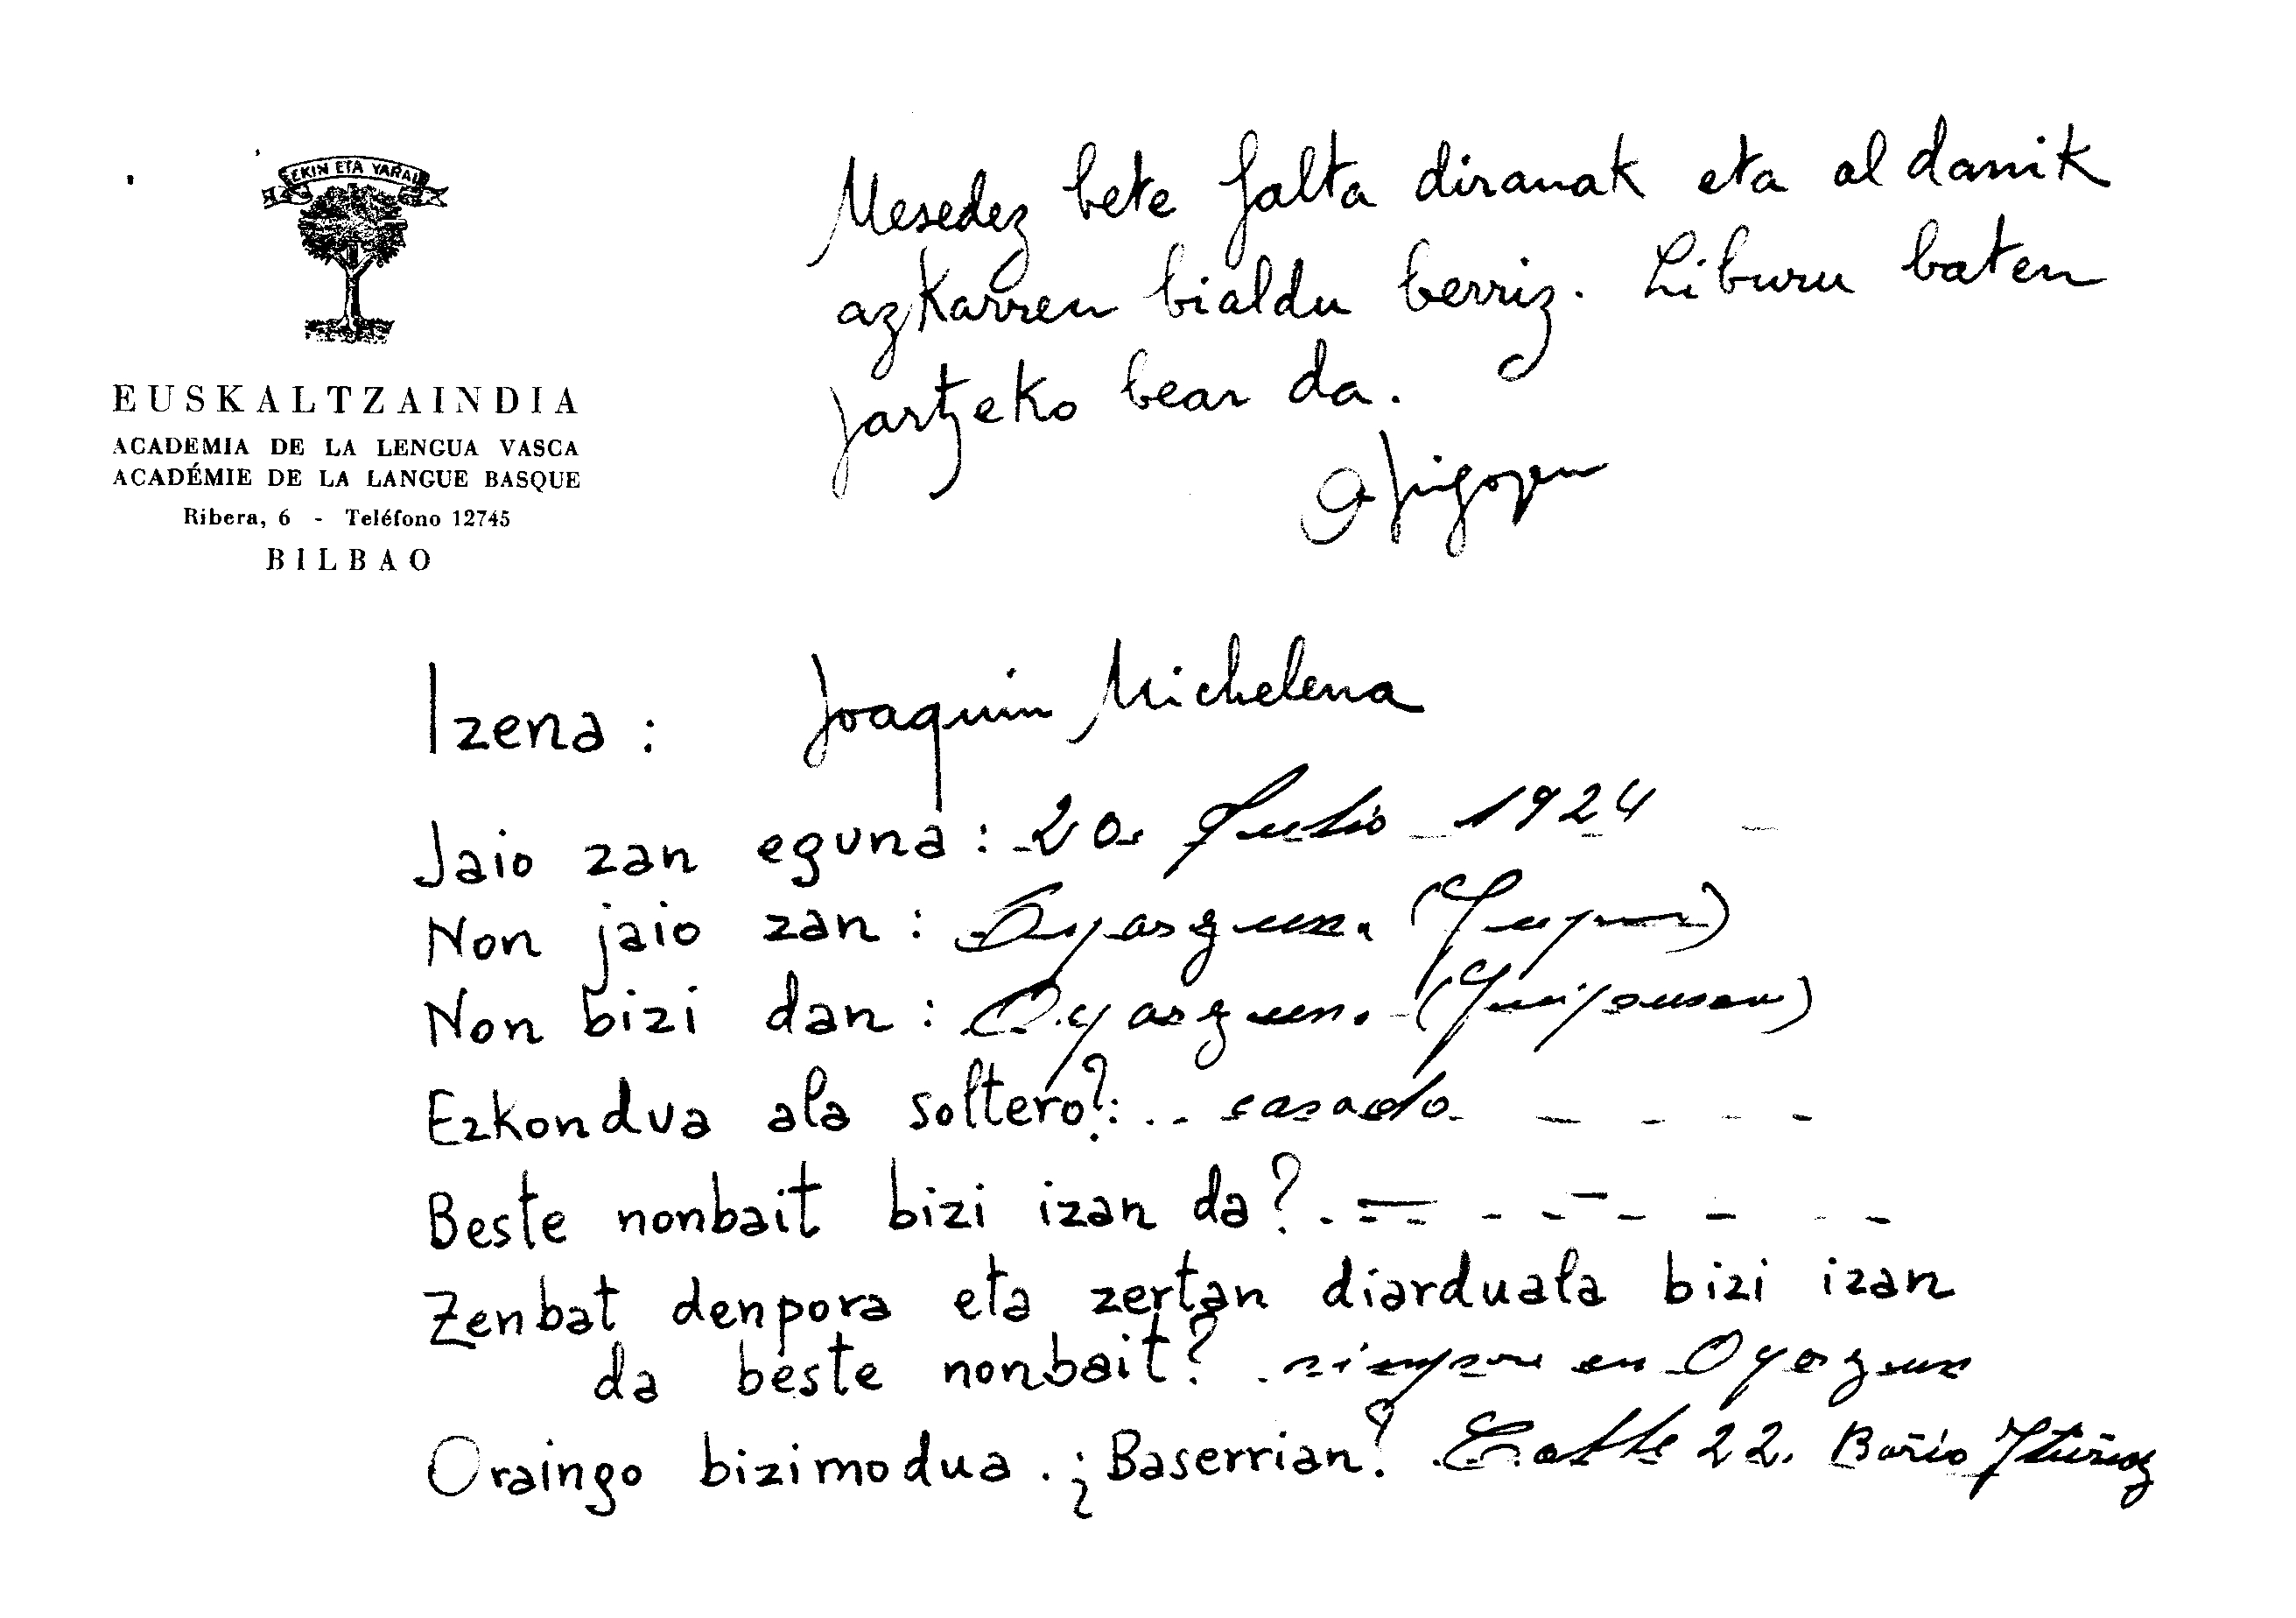 EKIN ETA YARAI
EUSKALTZAINDIA
ACADEMIA DE LA LENGUA VASCA
ACADÉMIE DE LA LANGUE BASQUE
Ribera, 6 - Teléfono 12745
BILBAO
Mesedez bete falta diranak eta al danik
azkarren bialdu berriz. Liburu baten
jartzeko bear da.
Izena : Joaquin Michelena
Jaio zan eguna : 20. Julio 1924
Non jaio zan : Oyarzun.
Non bizi dan : Oyarzun. (Guipuzcoa)
Ezkondua ala soltero? : casado
Beste nonbait bizi izan da?
Zenbat denpora eta zertan diarduala bizi izan
da beste nonbait? siempre en Oyarzun
Oraingo bizimodua. ¿Baserrian? Calle 22. Bario